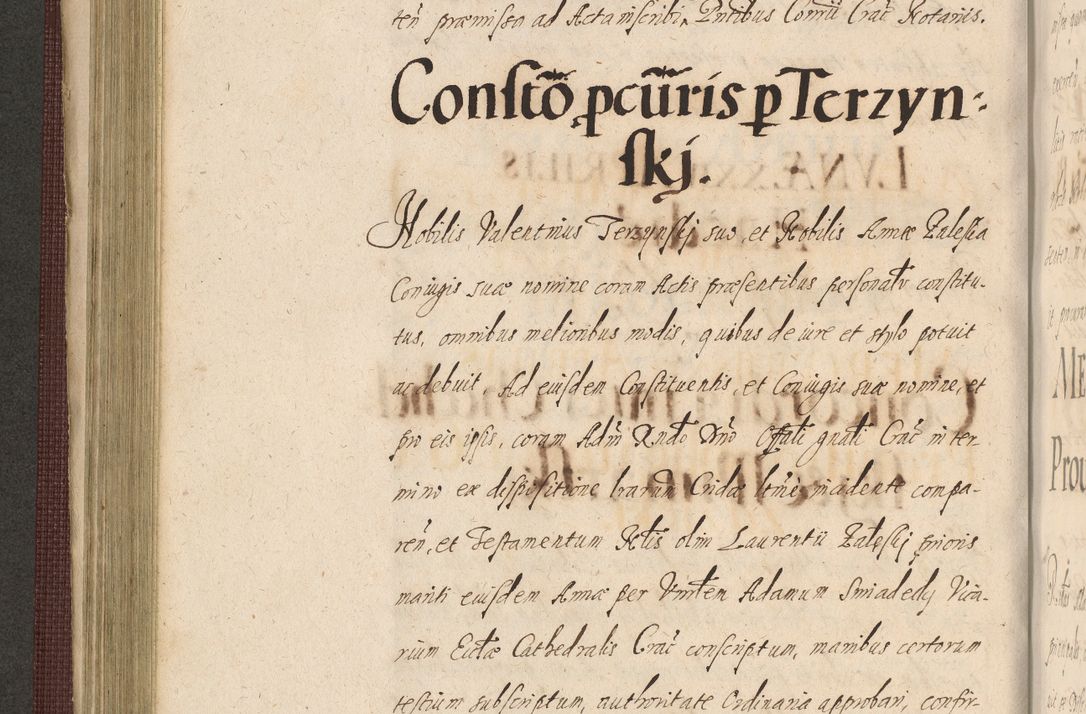 teñ præmissa ad Acta inscribi. Pntibus Comũ Crač Notariis.
Constõ pcũris p Terzyn-
skj.
Nobilis Valentinus Terzynskj suo, et Nobilis Annæ Zaleska
Coniugis suæ nomine coram Actis præsentibus personalr constitu-
tus, omnibus melioribus modis, quibus de iure et stylo potuit
ac debuit, Ad eiusdem Constituentis, et Coniugis suæ nomine, et
pro eis ipsis, coram Adm̃ Rndo Dño Offali gnali Crač in ter
mino ex dispositione lrarum Cridæ ltimè incidente compa-
reñ, et Testamentum Nlis olim Laurentii Zaleskj prioris
mariti eiusdem Annæ per Vnrlem Adamum Smiadedj Vica-
rium Ecclæ Cathedralis Crač conscriptum, manibus certorum
testium subscriptum, authoritate Ordinaria approbari, confir-